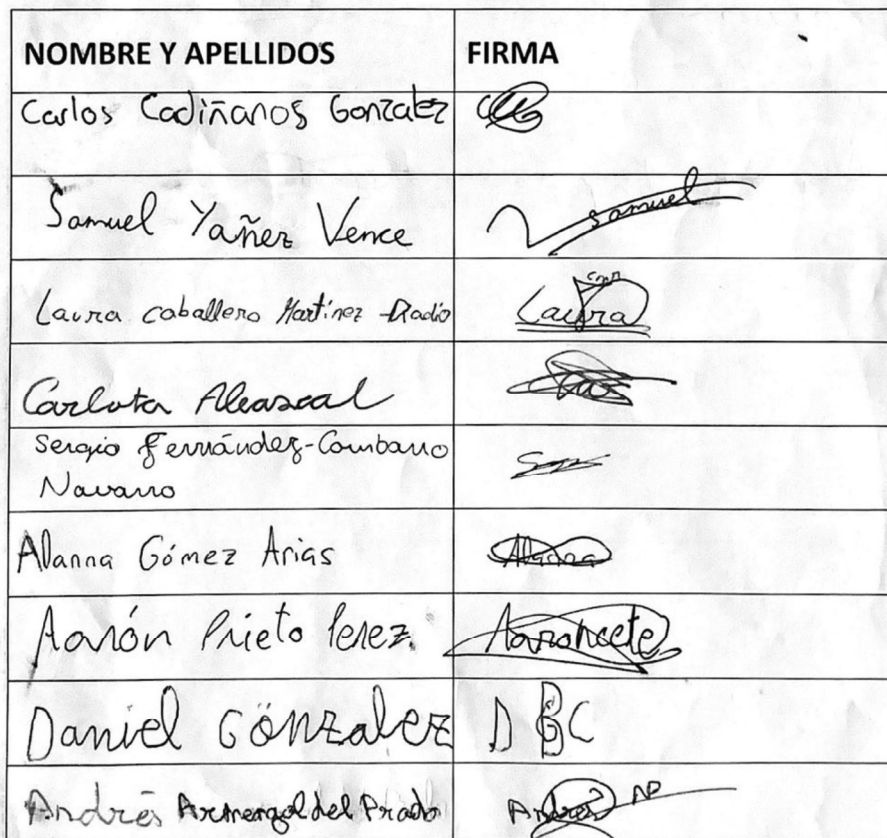 NOMBRE Y APELLIDOS FIRMA
Carlos Cadiñanos Gonzalez
Samuel Yañez Vence Samuel
Laura Caballero Martínez-Radío Laura
Carlota Aleascal
Sergio Fernández-Combarro
Navarro
Alanna Gómez Arias Alanna
Aarón Prieto Perez Aaroncete
Daniel Gönzalez DGC
Andrés Armengol del Prado Andrés AP